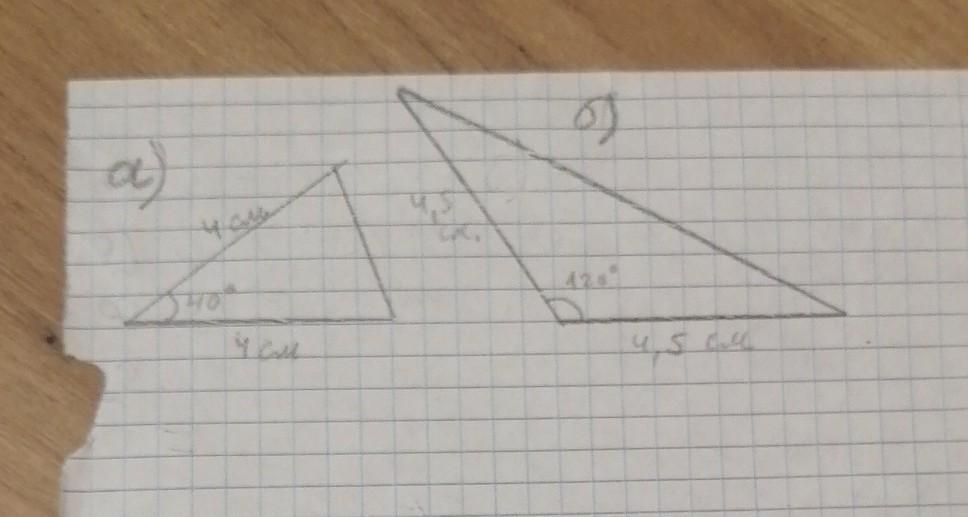 а)
4 см
40°
4 см
б)
4,5
см.
120°
4,5 см